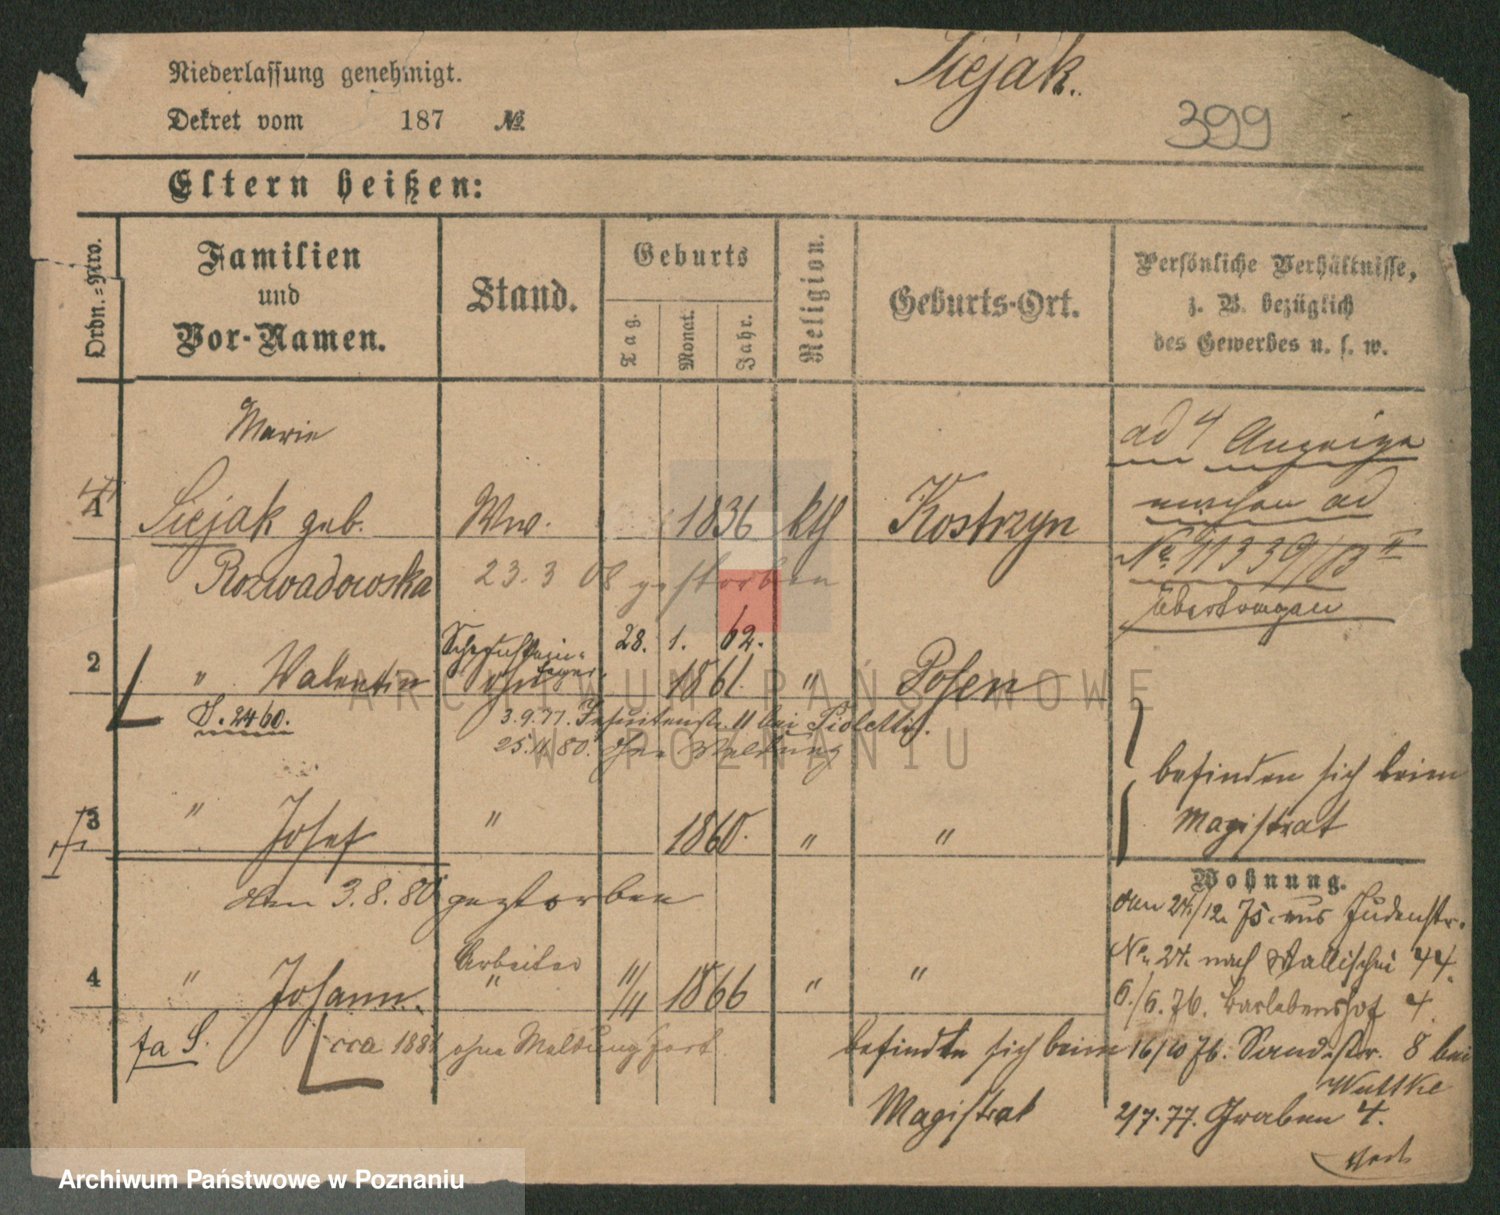 Niederlassung genehmigt.
Siejak.
Dekret vom 187 №
399
Eltern heißen:
Ordn.=Nro.
Familien und Vor-Namen.
Stand.
Geburts
Tag.
Monat.
Jahr.
Religion.
Geburts-Ort.
Persönliche Verhältnisse, z. B. bezüglich des Gewerbes u. s. w.
Marie
1 Siejak geb. Ww. 1836 kth Kostrzyn
Rozwadowska 23.3 08 gestorben
ad 4 Anzeige
ad
übertragen
28. 1. 62.
2 " Valentin 1861. " Posen
S. 2460. 3.9.77. Jesuitenstr. 11 bei
25.11.80. ohne Meldung
befinden sich beim
Magistrat
3 " Josef " 1860. " "
den 3.8.80 gestorben
Wohnung.
den 24/12. 75. aus Judenstr.
No. 27. nach Wallischei 44.
Arbeiter
4 " Johann. " 11/11 1866 " "
6./6. 76. Barlebenshof 4.
fa S. cca 188 ohne Meldung fort
befindet sich beim
Magistrat
16/10 76. Sandstr. 8 bei
Wuttke
2/7. 77. Graben 4.
ARCHIWUM PAŃSTWOWE
W POZNANIU
Archiwum Państwowe w Poznaniu